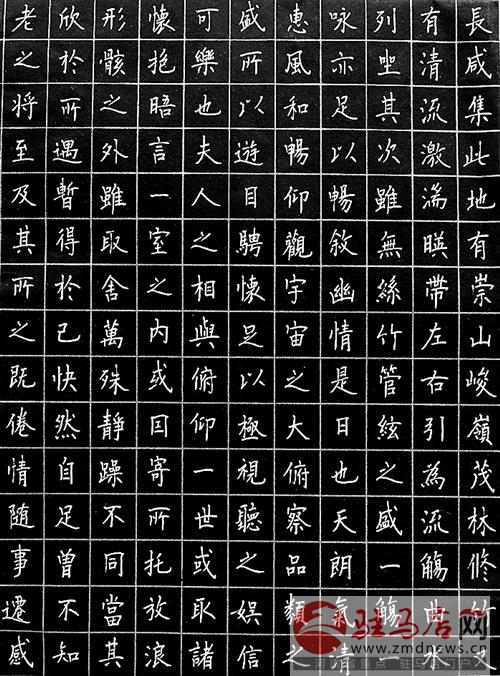 長咸集此地有崇山峻嶺茂林修竹又
有清流激湍暎帶左右引為流觴曲水
列坐其次雖無絲竹管絃之盛一觴一
咏亦足以暢敘幽情是日也天朗氣清
惠風和暢仰觀宇宙之大俯察品類之
盛所以遊目騁懷足以極視聽之娱信
可樂也夫人之相與俯仰一世或取諸
懷抱晤言一室之内或因寄所托放浪
形骸之外雖取舍萬殊靜躁不同當其
欣於所遇暫得於己快然自足曾不知
老之将至及其所之既倦情随事遷感
驻马店网
www.zmdnews.cn